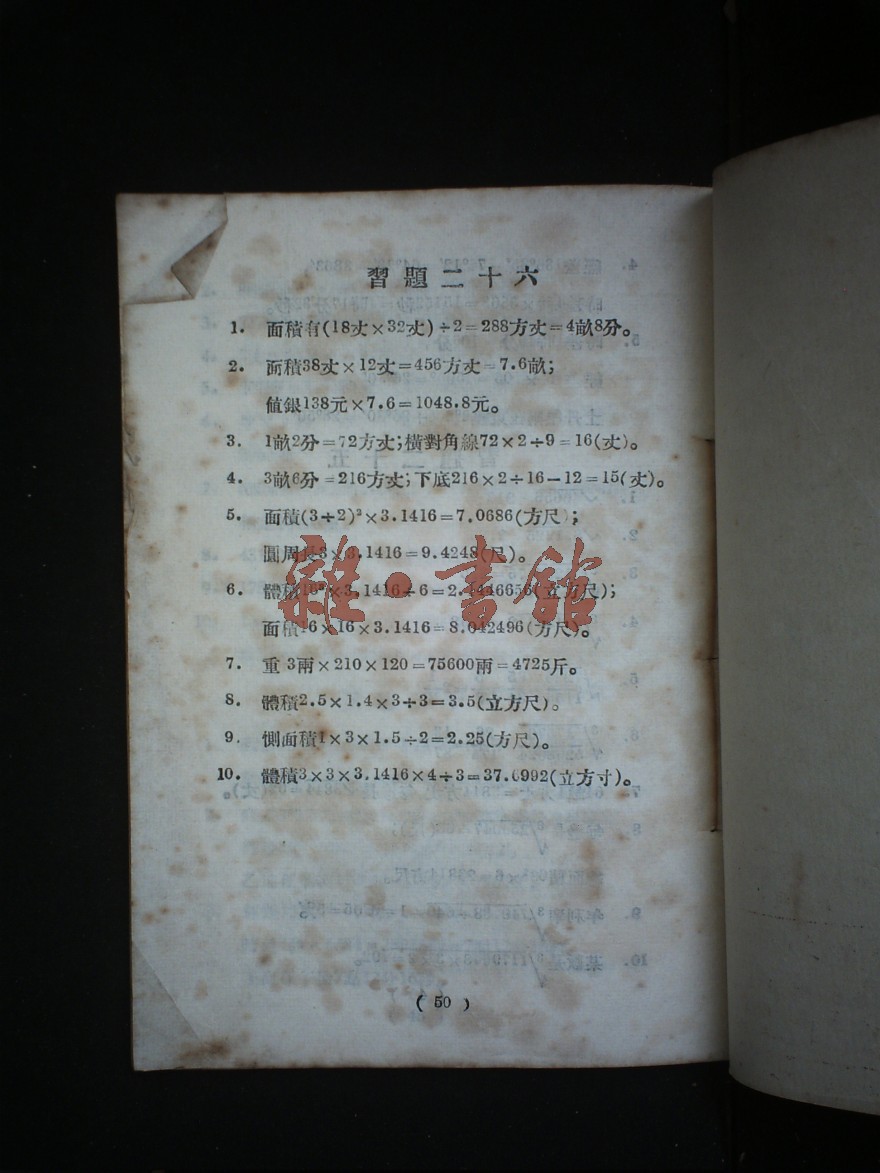 習題二十六
1. 面積有(18丈×32丈)÷2=288方丈=4畝8分。
2. 面積38丈×12丈=456方丈=7.6畝;
値銀138元×7.6=1048.8元。
3. 1畝2分=72方丈;橫對角線72×2÷9=16(丈)。
4. 3畝6分=216方丈;下底216×2÷16-12=15(丈)。
5. 面積(3÷2)²×3.1416=7.0686(方尺);
圓周長3×3.1416=9.4248(尺)。
6. 體積16³×3.1416÷6=2.1446656(立方尺);
面積16×16×3.1416=8.042496(方尺)。
7. 重 3兩×210×120=75600兩=4725斤。
8. 體積2.5×1.4×3÷3=3.5(立方尺)。
9. 側面積1×3×1.5÷2=2.25(方尺)。
10. 體積3×3×3.1416×4÷3=37.6992(立方寸)。
雜·書館
( 50 )